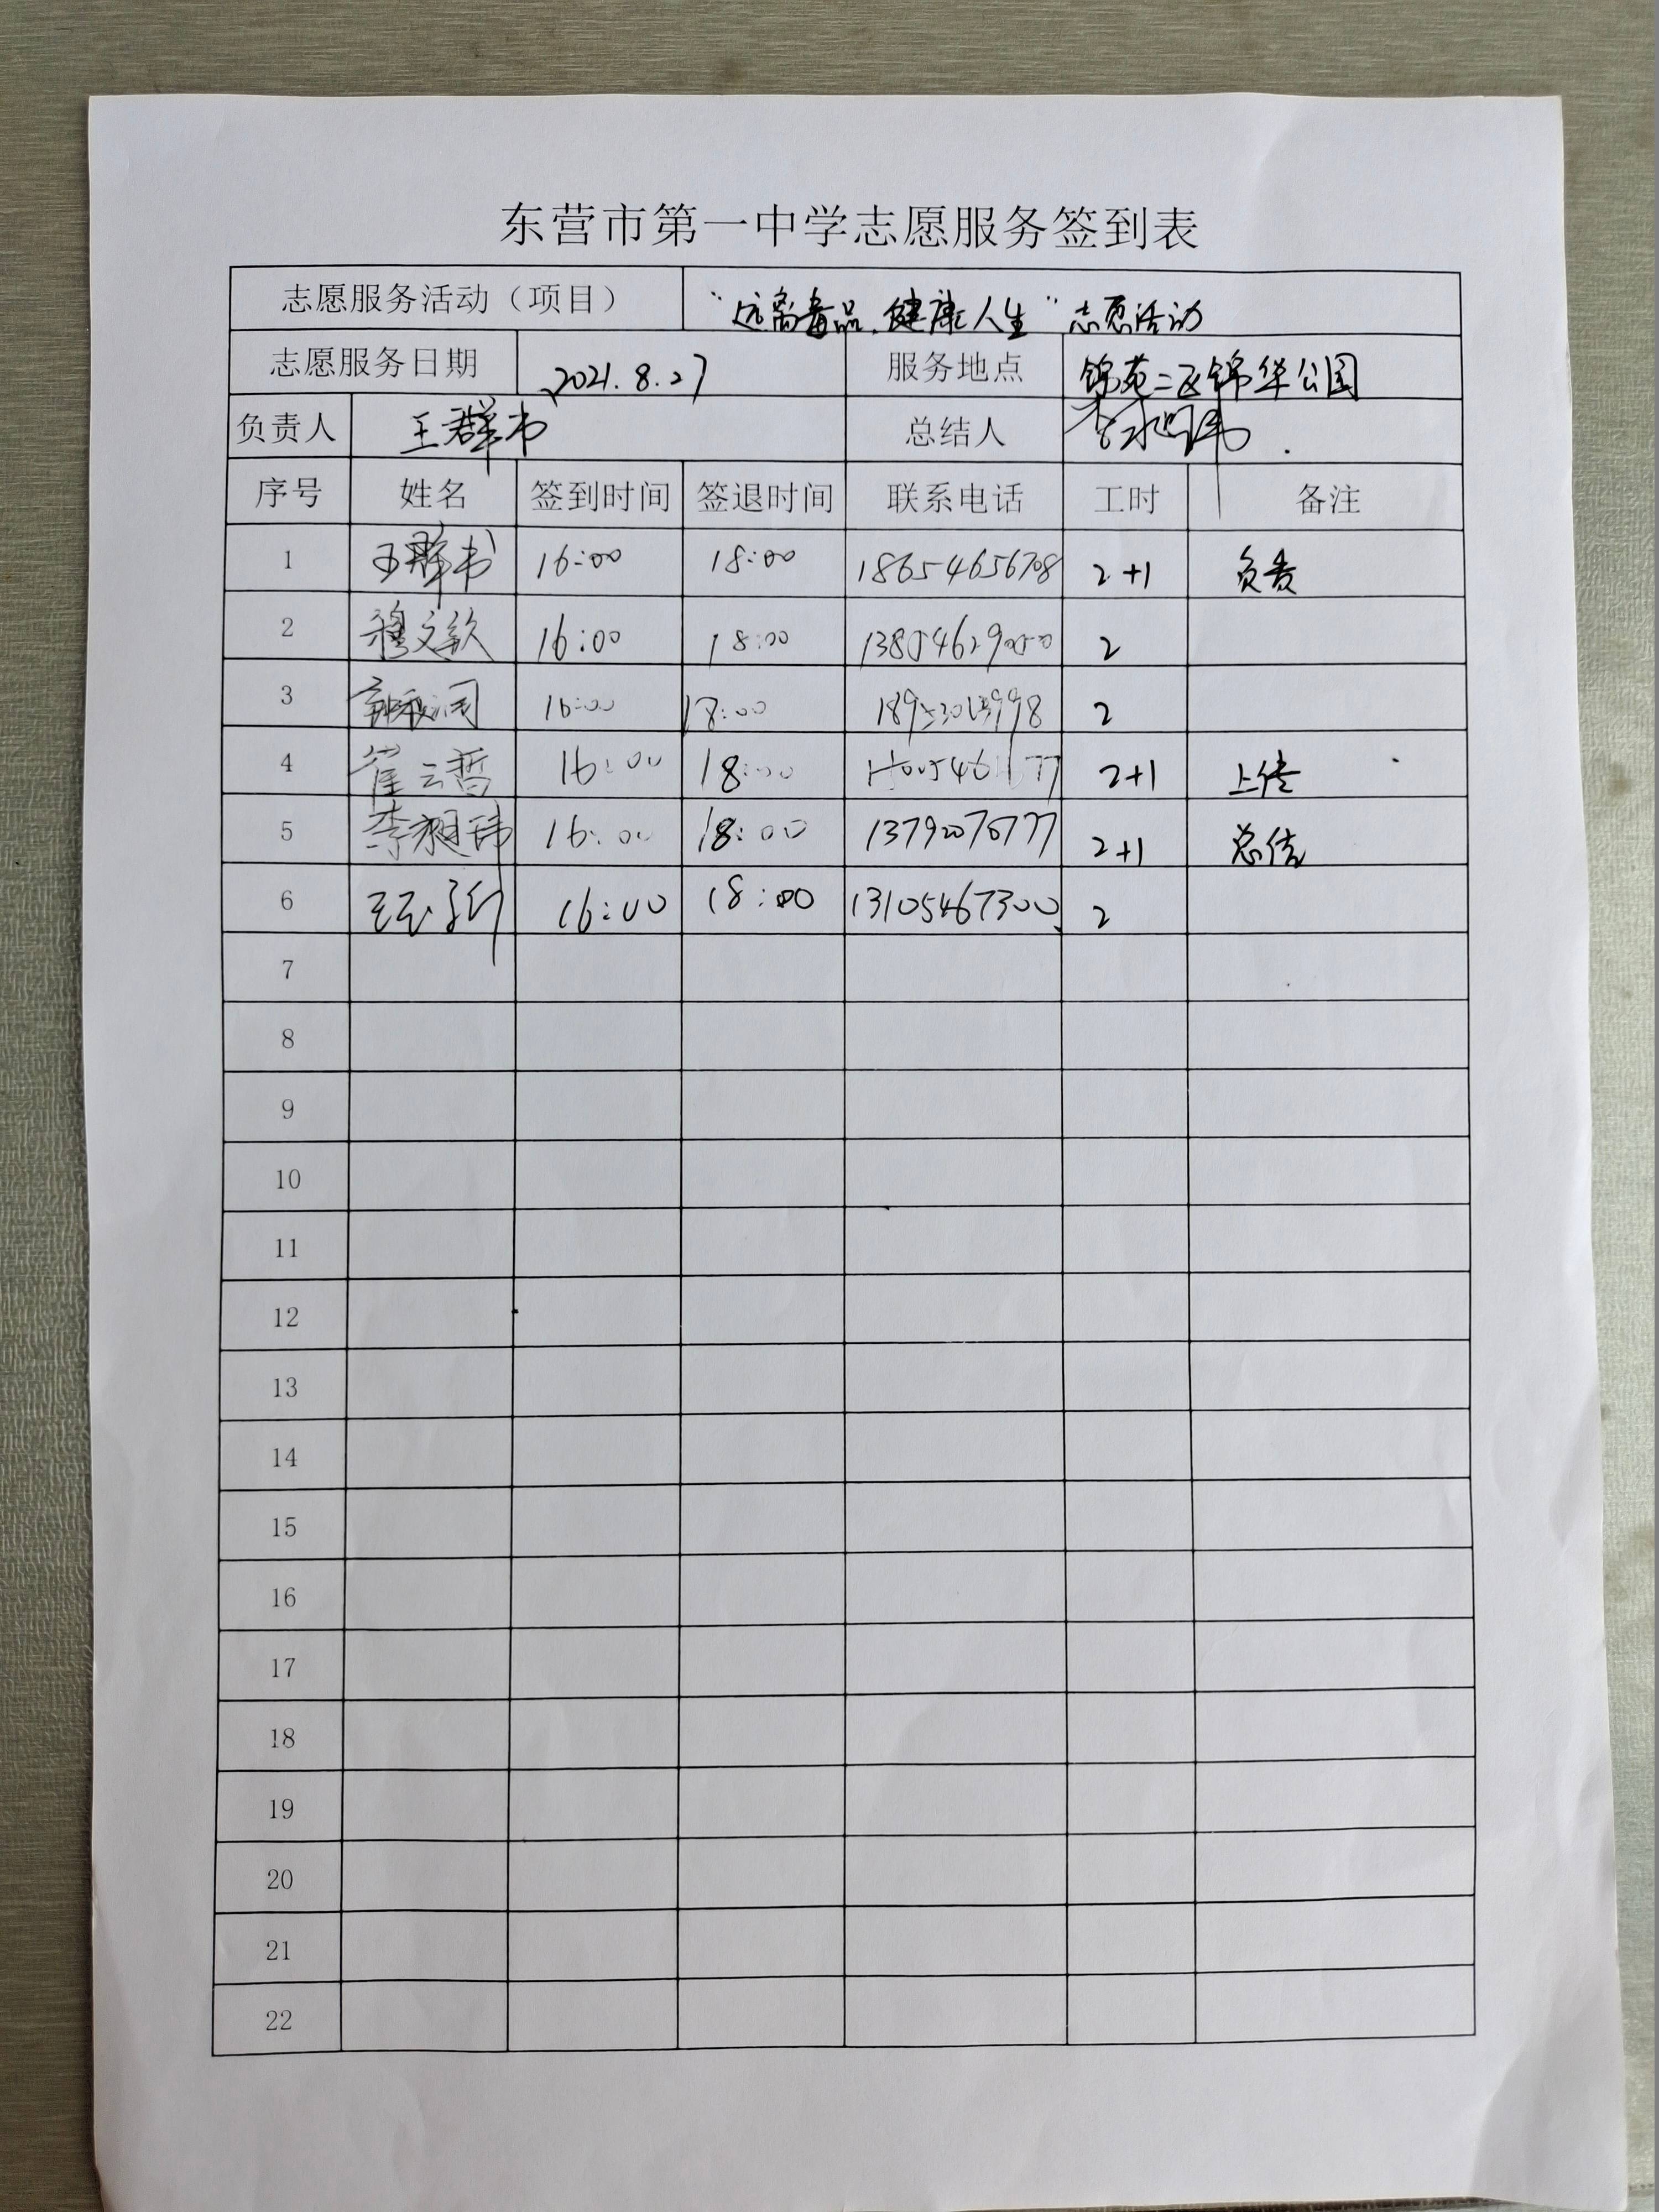 东营市第一中学志愿服务签到表
志愿服务活动（项目） “远离毒品，健康人生”志愿活动
志愿服务日期 2021.8.27 服务地点 锦苑二区锦华公园
负责人 王群书 总结人
序号 姓名 签到时间 签退时间 联系电话 工时 备注
1 王群书 16:00 18:00 18654656708 2+1 负责
2 穆文歆 16:00 18:00 2
3 16:00 18:00 2
4 崔云哲 16:00 18:00 2+1 上传
5 16:00 18:00 13792076777 2+1 总结
6 16:00 18:00 13105467300 2
7
8
9
10
11
12
13
14
15
16
17
18
19
20
21
22